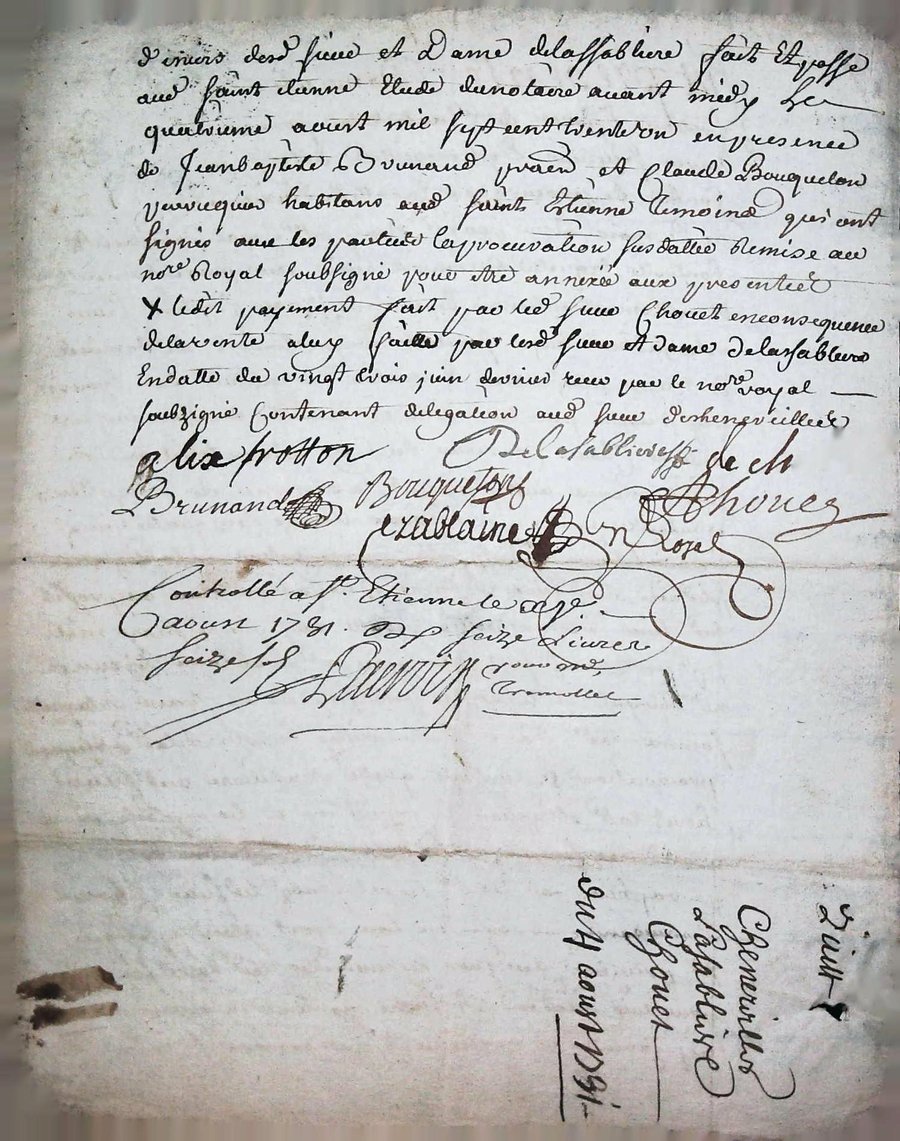 d'iceux desd sieur et Dame delassabliere fait Et passé
aud saint etienne Etude dunotaire avant midy Le
quatrieme aoust mil sept cent trente un enpresence
de Jeanbaptiste Brunand et Claude Bouqueton
perruquier habitans aud saint Etienne temoins qui ont
signés avec les parties laprocuration susdattée Remise au
nore Royal soubsigné pour etre annexée aux presentes
X ledit payement fait par led sieur Chouet enconsequence
delavente aluy faitte par lesd sieur et dame delassabliere
Endatte du vingt trois juin dernier receu par le nore royal
soubzigné Contenant delegation aud sieur deschenevilles
alix frotton Delasabliere de ch
Brunand Bouqueton Chouet
ezablaine n Royal
Controllé a St. Etienne le
aoust 1731. seize Livres
seize s
du 4 aoust 1731
Chenevilles
Lasabliere
Chouet